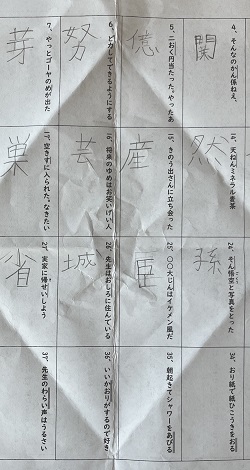 4、そんなのかん係ねえ、
関
5、二おく円当たった。やったあ
億
6、どりょくしてできるようにする
努
7、やっとゴーヤのめが出た
芽
14、天ねんミネラル麦茶
然
15、きのう出さんに立ち会った
産
16、将来のゆめはお笑いげい人
芸
17、空きすに入られた。なきたい
巣
24、そん悟空と写真をとった
孫
25、〇〇大じんはイケメン風だ
臣
26、先生はおしろに住んでいる
城
27、実家に帰せいしよう
省
34、おり紙で紙ひこうきをおる
35、朝起きてシャワーをあびる
36、いいかおりがするので好き
37、先生のわらい声はうるさい